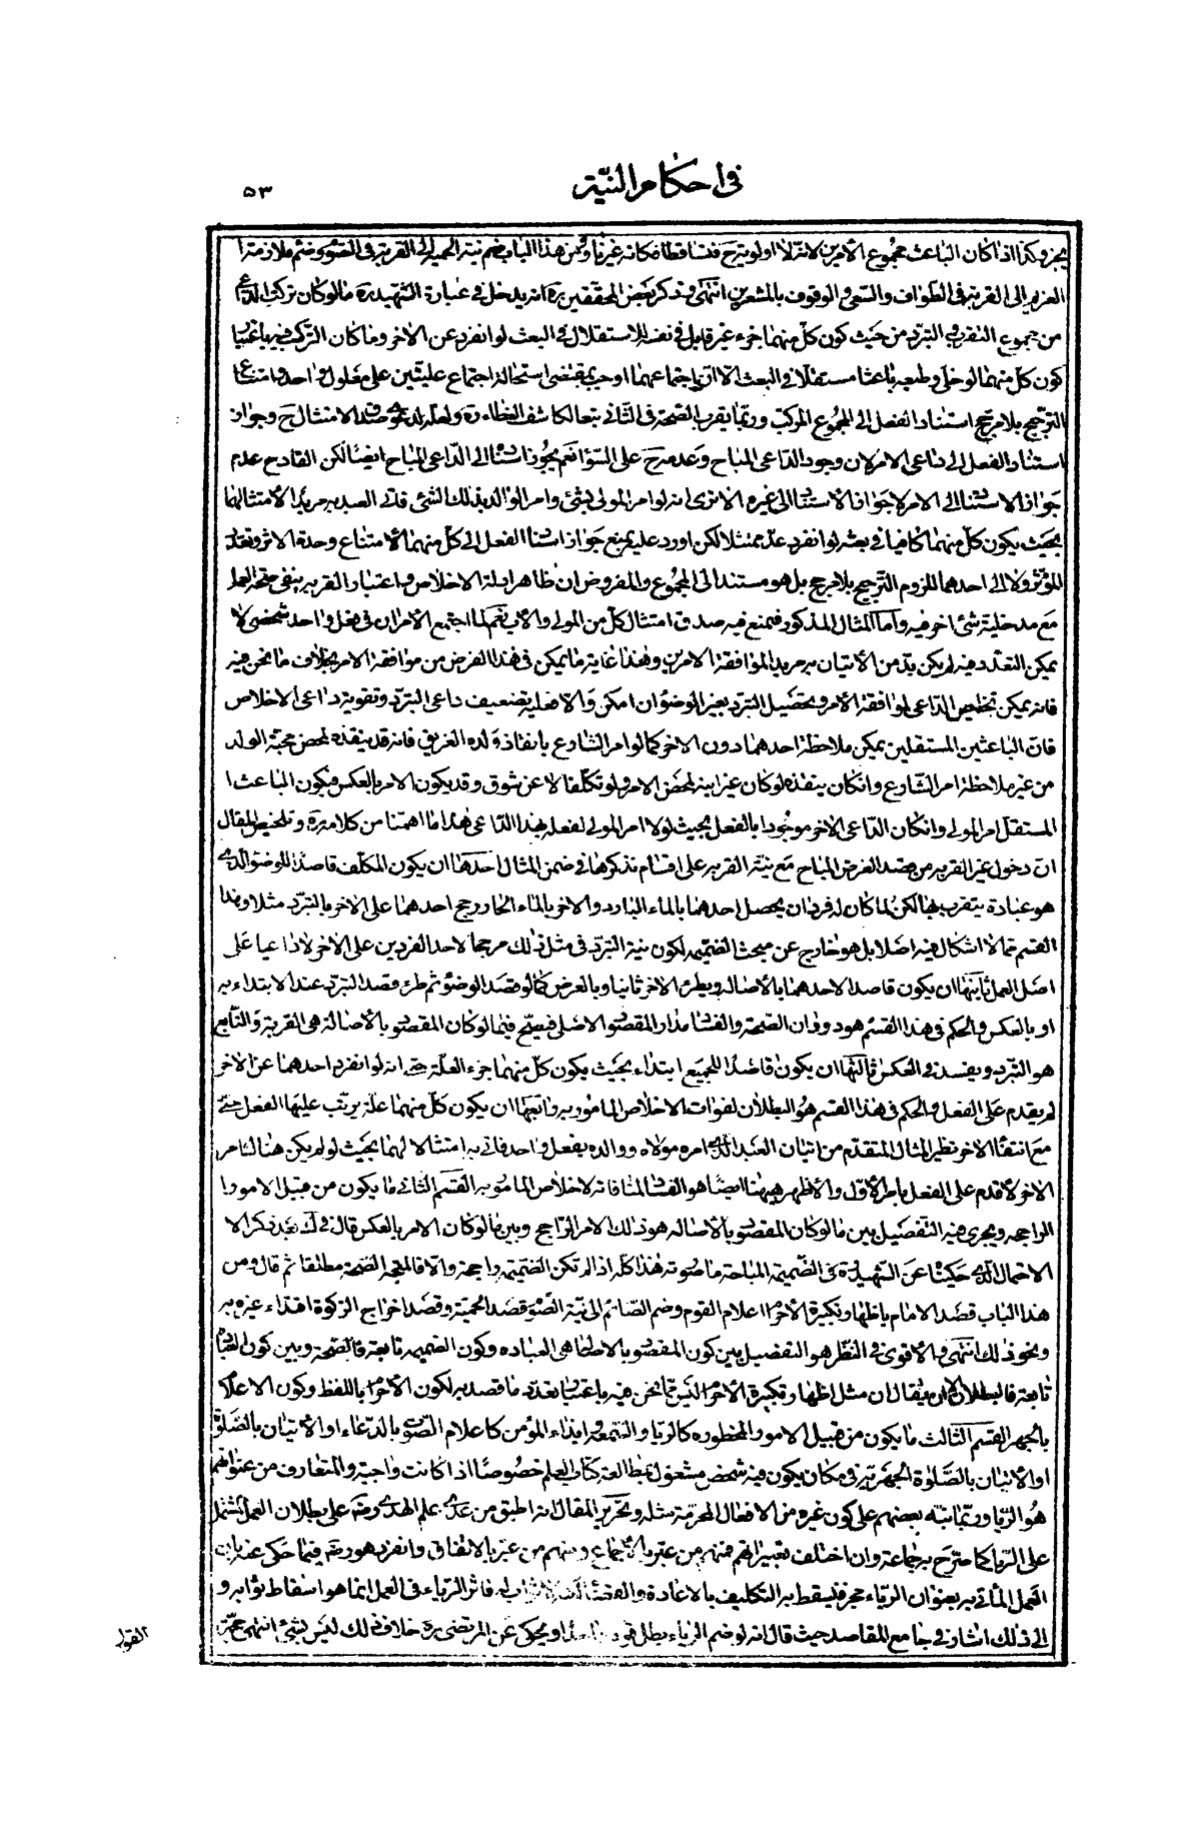 في احكام النيّة
٥٣
يجز وكذا اذا كان الباعث مجموع الأمرين لانه لا اولويّة ح فتساقطا فكانه غير ناو ومن هذا الباب ضم نية الحمية الى القربة في الصّوم وضم ملازمة
الغريم الى القربة في الطّواف والسّعي والوقوف بالمشعرين انتهى وذكر بعض المحققين ره انه يدخل في عبارة الشهيد ره ما لو كان تركب الداعي
من مجموع التقرب والتبرد من حيث كون كلّ منهما جزء غير قابل في نفسه للاستقلال في البعث لو انفرد عن الاخر وما كان التركب فيه باعتبار
كون كل منهما لو خلى وطبعه باعثا مستقلا في البعث الا ان اجتماعهما اوجب بمقتضى استحالة اجتماع علّتين على معلول واحد وامتناع
الترجيح بلا مرجح استناد الفعل الى المجموع المركب وربّما يقرب الصحة في الثاني تبعا لكاشف الغطاء ره ولعله لدعوى صدق الامتثال ح وجواز
استناد الفعل الى داعي الامر لان وجود الداعي المباح وعدمه ح على السّواء نعم يجوز استناده الى الدّاعي المباح ايضا لكن القادح عدم
جواز الاستناد الى الامر لا جواز الاستناد الى غيره الا ترى انه لو امر المولى بشئ وامر الوالد بذلك الشئ فاتى العبد به مريدا لامتثالهما
بحيث يكون كل منهما كافيا في بعثه لو انفرد عدّ ممتثلا لكن اورد عليه بمنع جواز استناد الفعل الى كلّ منهما لامتناع وحدة الاثر وتعدّد
المؤثر ولا الى احدهما للزوم الترجيح بلا مرجح بل هو مستند الى المجموع والمفروض ان ظاهر ادلة الاخلاص واعتبار القربة ينفي صحة العمل
مع مدخلية شئ اخر فيه وامّا المثال المذكور فيمنع فيه صدق امتثال كلّ من المولى والأب نعم لما اجتمع الأمران في فعل واحد شخصي لا
يمكن التعدّد فيه لم يكن بدّ من الأتيان به مريدا لموافقة الامرين وهذا غاية ما يمكن في هذا الفرض من موافقة الامر بخلاف ما نحن فيه
فانه يمكن تخليص الدّاعي لموافقة الأمر وتحصيل التبرد بغير الوضوء ان امكن والا فعليه تضعيف داعي التبرّد وتقوية داعي الاخلاص
فان الباعثين المستقلين يمكن ملاحظة احدهما دون الاخر كما لو امر الشارع بانقاذ ولده الغريق فانه قد ينقذه لمحض محبّة الولد
من غير ملاحظة امر الشارع وان كان ينقذه لو كان غير ابنه لمحض الامر ولو تكلّفا لا عن شوق وقد يكون الامر بالعكس فيكون الباعث
المستقل امر المولى وان كان الدّاعي الاخر موجودا بالفعل بحيث لو لا امر المولى لفعله بهذا الداعي هذا ما اهمّنا من كلامه ره وتلخيص المقال
ان دخول غير القربة من قصد الغرض المباح مع نيّة القربة على اقسام نذكرها في ضمن المثال احدها ان يكون المكلّف قاصدا للوضوء الّذي
هو عبادة يتقرب بها لكن لما كان له فردان يحصل احدهما بالماء البارد والاخر بالماء الحار رجح احدهما على الاخر بالتبرّد مثلا وهذا
القسم مما لا اشكال فيه اصلا بل هو خارج عن مبحث الضميمه لكون نية التبرّد في مثل ذلك مرجحا لاحد الفردين على الاخر لا داعيا على
اصل العمل ثانيها ان يكون قاصدا لاحدهما بالأصاله ويطرء الاخر ثانيا وبالعرض كما لو قصد الوضوء ثم طرء قصد التبرّد عند الابتداء به
او بالعكس والحكم في هذا القسم هو دوران الصّحة والفساد مدار المقصود الاصلي فيصحّ فيما لو كان المقصود بالأصالة هي القربة والتابع
هو التبرّد ويفسد في العكس ثالثها ان يكون قاصدا للجميع ابتداء بحيث يكون كلّ منهما جزء العلّة حتى انه لو انفرد احدهما عن الاخر
لم يقدم على الفعل والحكم في هذا القسم هو البطلان لفوات الاخلاص المامور به رابعها ان يكون كلّ منهما علّة يرتّب عليها الفعل حتى
مع انتفاء الاخر نظير المثال المتقدّم من اتيان العبد الّذي امره مولاه ووالده بفعل واحد فاتى به امتثالا لهما بحيث لو لم يكن هناك امر
الاخر لأقدم على الفعل بامر الأوّل والأظهر هيهنا ايضا هو الفساد لمنافاته لاخلاص المامور به القسم الثّاني ما يكون من قبيل الامور
الراجحه ويجري فيه التّفصيل بين ما لو كان المقصود بالأصاله هو ذلك الامر الرّاجح وبين ما لو كان الامر بالعكس قال في ك بعد ذكر
الاحتمال الّذي حكيناه عن الشهيد ره في الضّميمة المباحة ما صورته هذا كلّه اذا لم تكن الضميمة راجحة والا فالمتجه الصّحة مطلقا ثم قال ومن
هذا الباب قصد الامام باظهاره تكبيرة الأحرام اعلام القوم وضم الصّائم الى نية الصّوم قصد الحمية وقصد اخراج الزكوة اقتداء غيره به
ونحو ذلك انتهى والأقوى في النّظر هو التفصيل بين كون المقصود بالاصالة هي العباده وكون الضميمه تابعة فالصّحة وبين كون العبادة
تابعة فالبطلان الا ان يقال ان مثل اظهاره تكبيرة الأحرام ليس ممّا نحن فيه باعتبار تعدد ما قصد به لكون الأحرام باللفظ وكون الاعلام
بالجهر القسم الثالث ما يكون من قبيل الامور المحظوره كالريا والسّمعة وايذاء المؤمن كاعلام الصّبي بالدّعاء او الأتيان بالصّلوة
او الأتيان بالصّلوة الجهريّة في مكان يكون فيه شخص مشغول بمطالعة كتاب العلم خصوصًا اذا كانت واجبة والمتعارف من عنوانهم
هو الرّيا وربّما نبّه بعضهم على كون غيره من الافعال المحرّمة مثله وتحرير المقال انه اطبق من عدى علم الهدى رضه على بطلان العمل المشتمل
على الرّيا كما صرّح به جماعة وان اختلف تعبيراتهم فمنهم من عبّر بالأجماع ومنهم من عبّر بالاتفاق وانفرد هو رضه فيما حكى عنه بان
العمل المأتي به بعنوان الرّياء مجز فيسقط به التكليف بالاعادة والقضاء الا انه لا ثواب له فاثر الرياء في العمل انما هو اسقاط ثوابه و
الى ذلك اشار في جامع المقاصد حيث قال انه لو ضم الرياء بطل قولا واحدا ويحكى عن المرتضى ره خلاف في ذلك ليس بشئ انتهى حجّة
القول